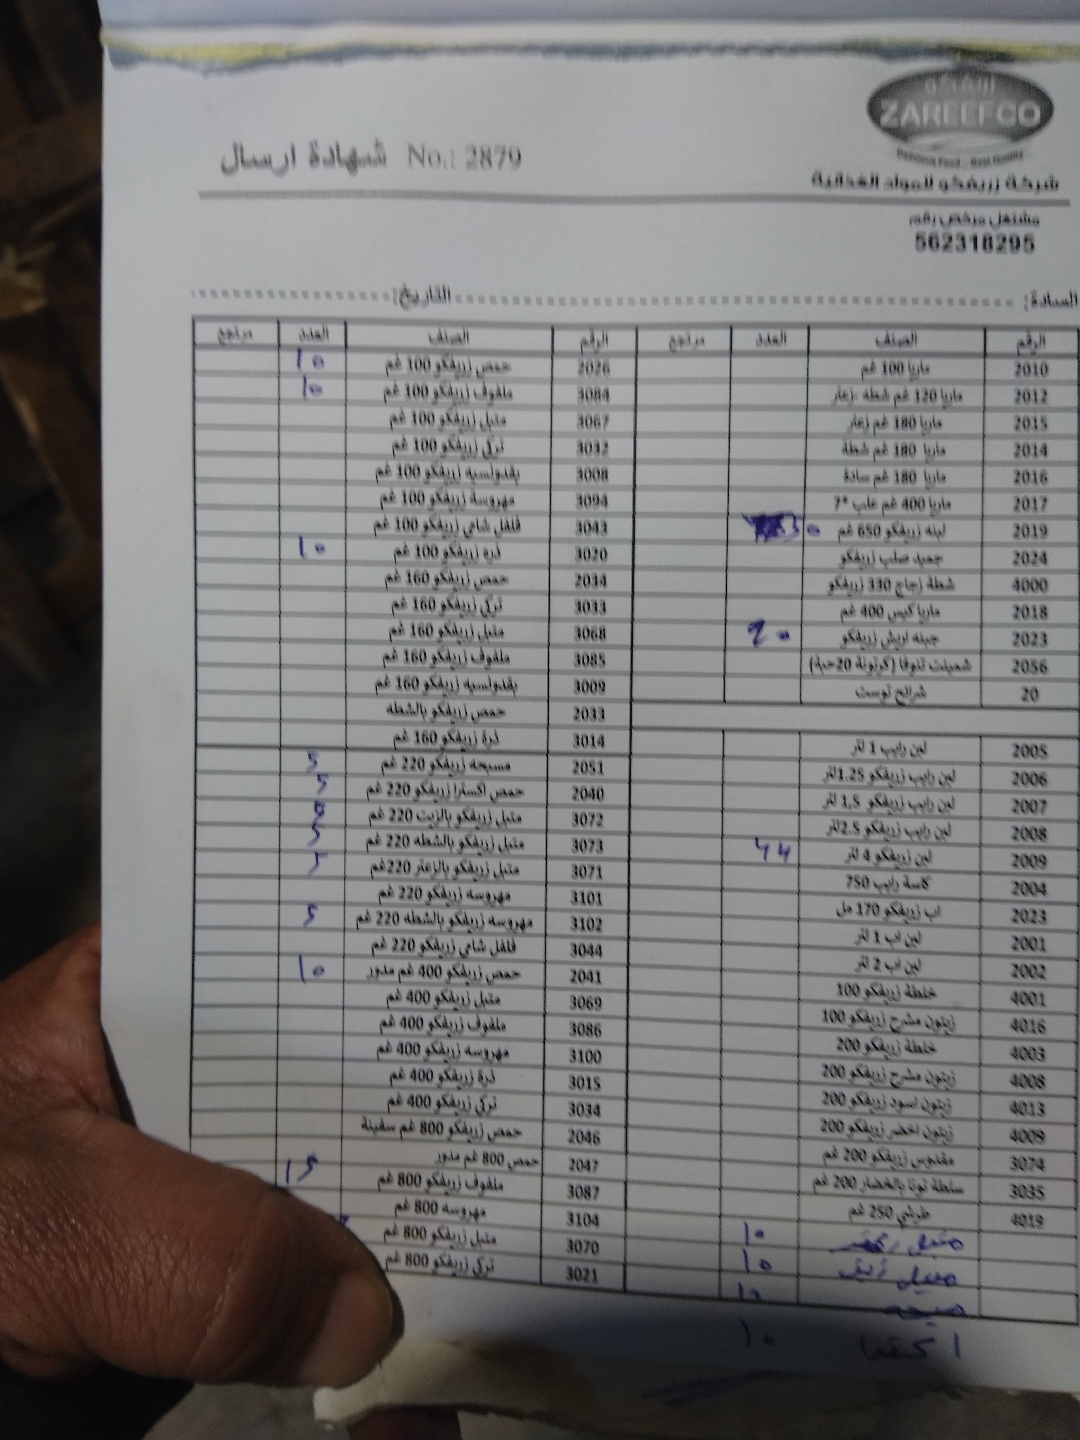 زريفكو
ZAREEFCO
شركة زريفكو للمواد الغذائية
شهادة ارسال No.: 2879
مشتغل مرخص رقم
562318295
السادة: التاريخ:
الرقم الصنف العدد مرتجع الرقم الصنف العدد مرتجع
2010 ماريا 100 غم 2026 حمص زريفكو 100 غم 10
2012 ماريا 120 غم شطة -زعتر 3084 ملفوف زريفكو 100 غم 10
2015 ماريا 180 غم زعتر 3067 متبل زريفكو 100 غم
2014 ماريا 180 غم شطة 3032 تركي زريفكو 100 غم
2016 ماريا 180 غم سادة 3008 بقدونسيه زريفكو 100 غم
2017 ماريا 400 غم علب *7 3094 مهروسة زريفكو 100 غم
2019 لبنه زريفكو 650 غم 3043 فلفل شامي زريفكو 100 غم
2024 جميد صلب زريفكو 3020 ذرة زريفكو 100 غم 10
4000 شطة زجاج 330 زريفكو 2034 حمص زريفكو 160 غم
2018 ماريا كيس 400 غم 3033 تركي زريفكو 160 غم
2023 جبنه اريش زريفكو 20 3068 متبل زريفكو 160 غم
2056 شمينت تنوفا (كرتونة 20حبة) 3085 ملفوف زريفكو 160 غم
20 شرائح توست 3009 بقدونسيه زريفكو 160 غم
2033 حمص زريفكو بالشطه
2005 لبن رايب 1 لتر 3014 ذرة زريفكو 160 غم
2006 لبن رايب زريفكو 1.25لتر 2051 مسبحه زريفكو 220 غم 5
2007 لبن رايب زريفكو 1,5 لتر 2040 حمص اكسترا زريفكو 220 غم 5
2008 لبن رايب زريفكو 2.5لتر 3072 متبل زريفكو بالزيت 220 غم 5
2009 لبن زريفكو 4 لتر 44 3073 متبل زريفكو بالشطه 220 غم 5
2004 كاسة رايب 750 3071 متبل زريفكو بالزعتر 220غم 5
2023 اب زريفكو 170 مل 3101 مهروسه زريفكو 220 غم
2001 لبن اب 1 لتر 3102 مهروسه زريفكو بالشطه 220 غم 5
2002 لبن اب 2 لتر 3044 فلفل شامي زريفكو 220 غم
4001 خلطة زريفكو 100 2041 حمص زريفكو 400 غم مدور 10
4016 زيتون مشرح زريفكو 100 3069 متبل زريفكو 400 غم
4003 خلطة زريفكو 200 3086 ملفوف زريفكو 400 غم
4008 زيتون مشرح زريفكو 200 3100 مهروسه زريفكو 400 غم
4013 زيتون اسود زريفكو 200 3015 ذرة زريفكو 400 غم
4009 زيتون اخضر زريفكو 200 3034 تركي زريفكو 400 غم
3074 مقدوس زريفكو 200 غم 2046 حمص زريفكو 800 غم سفينة
3035 سلطة تونا بالخضار 200 غم 2047 حمص 800 غم مدور 15
4019 طرشي 250 غم 3087 ملفوف زريفكو 800 غم
متبل 10 3104 مهروسه 800 غم
متبل زيت 10 3070 متبل زريفكو 800 غم
10 3021 تركي زريفكو 800 غم
10